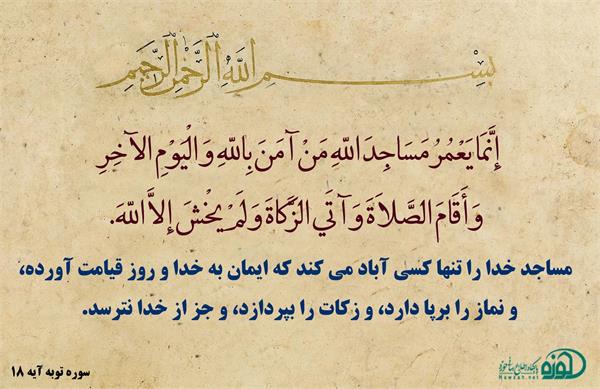 بِسْمِ اللَّهِ الرَّحْمَنِ الرَّحِيمِ
إِنَّمَا يَعْمُرُ مَسَاجِدَ اللَّهِ مَنْ آمَنَ بِاللَّهِ وَالْيَوْمِ الآخِرِ
وَأَقَامَ الصَّلاَةَ وَآتَى الزَّكَاةَ وَلَمْ يَخْشَ إِلاَّ اللَّهَ.
مساجد خدا را تنها کسی آباد می کند که ایمان به خدا و روز قیامت آورده،
و نماز را برپا دارد، و زکات را بپردازد، و جز از خدا نترسد.
حوزه
Hawzah.net
سوره توبه آیه ۱۸